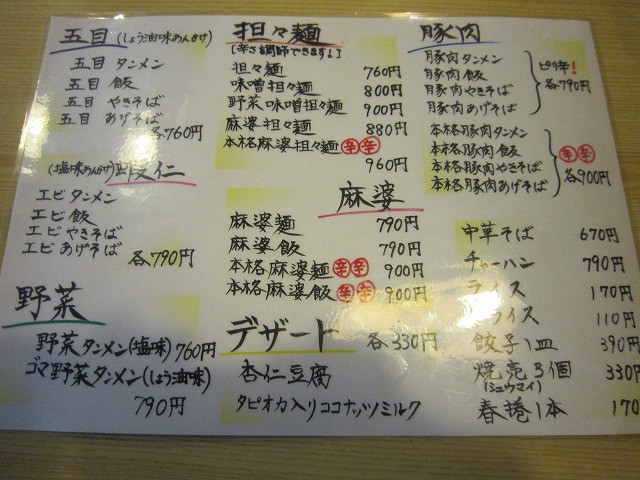 五目(しょう油味あんかけ)
五目 タンメン
五目 飯
五目 やきそば
五目 あげそば
各760円
(塩味あんかけ) 蝦仁
エビタンメン
エビ飯
エビやきそば
エビあげそば
各790円
野菜
野菜タンメン(塩味) 760円
ゴマ野菜タンメン(しょう油味)
790円
担々麺
[辛さ調節できます!]
担々麺 760円
味噌担々麺 800円
野菜味噌担々麺 900円
麻婆担々麺 880円
本格麻婆担々麺 辛辛
960円
麻婆
麻婆麺 790円
麻婆飯 790円
本格麻婆麺 辛辛 900円
本格麻婆飯 辛辛 900円
デザート 各330円
杏仁豆腐
タピオカ入りココナッツミルク
豚肉
豚肉タンメン
豚肉飯
豚肉やきそば
豚肉あげそば
ピリ辛!
各790円
本格豚肉タンメン
本格豚肉飯
本格豚肉やきそば
本格豚肉あげそば
辛辛
各900円
中華そば 670円
チャーハン 790円
ライス 170円
ライス 110円
餃子1皿 390円
焼売3個 330円
(シュウマイ)
春捲1本 170